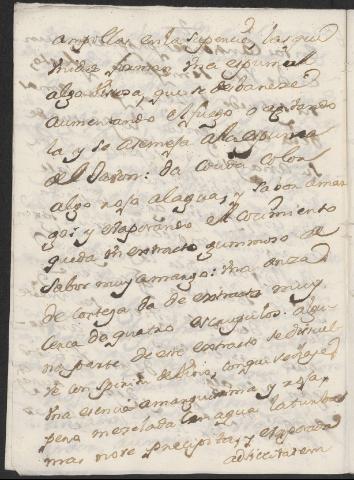 ampollas en la superficie, las qu
forman una espuma
algo que se desbanece
aumentando el fuego o agitando
la, y se asemeja a la espuma
del Jabon: da color
algo roja al agua, y sabor amar
go: y evaporando el cocimiento
queda un extracto gummoso de
sabor muy amargo: una onza
de corteza da de extracto muy
cerca de quatro escrupulos. algu
na parte de este extracto se disuel
ve con spiritu de vino, con que se
una esencia amarguisima y roja,
pero mezclada con agua la turba
mas no se precipita, y evaporada
ad siccitatem